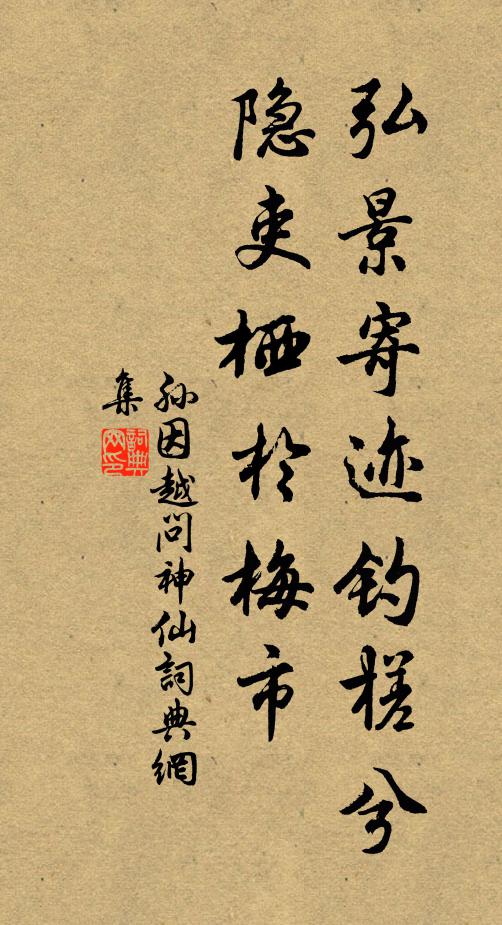 弘景寄迹钓槎兮
隐吏栖於梅市
孙因越问神仙詞典網
集
詞典
网印